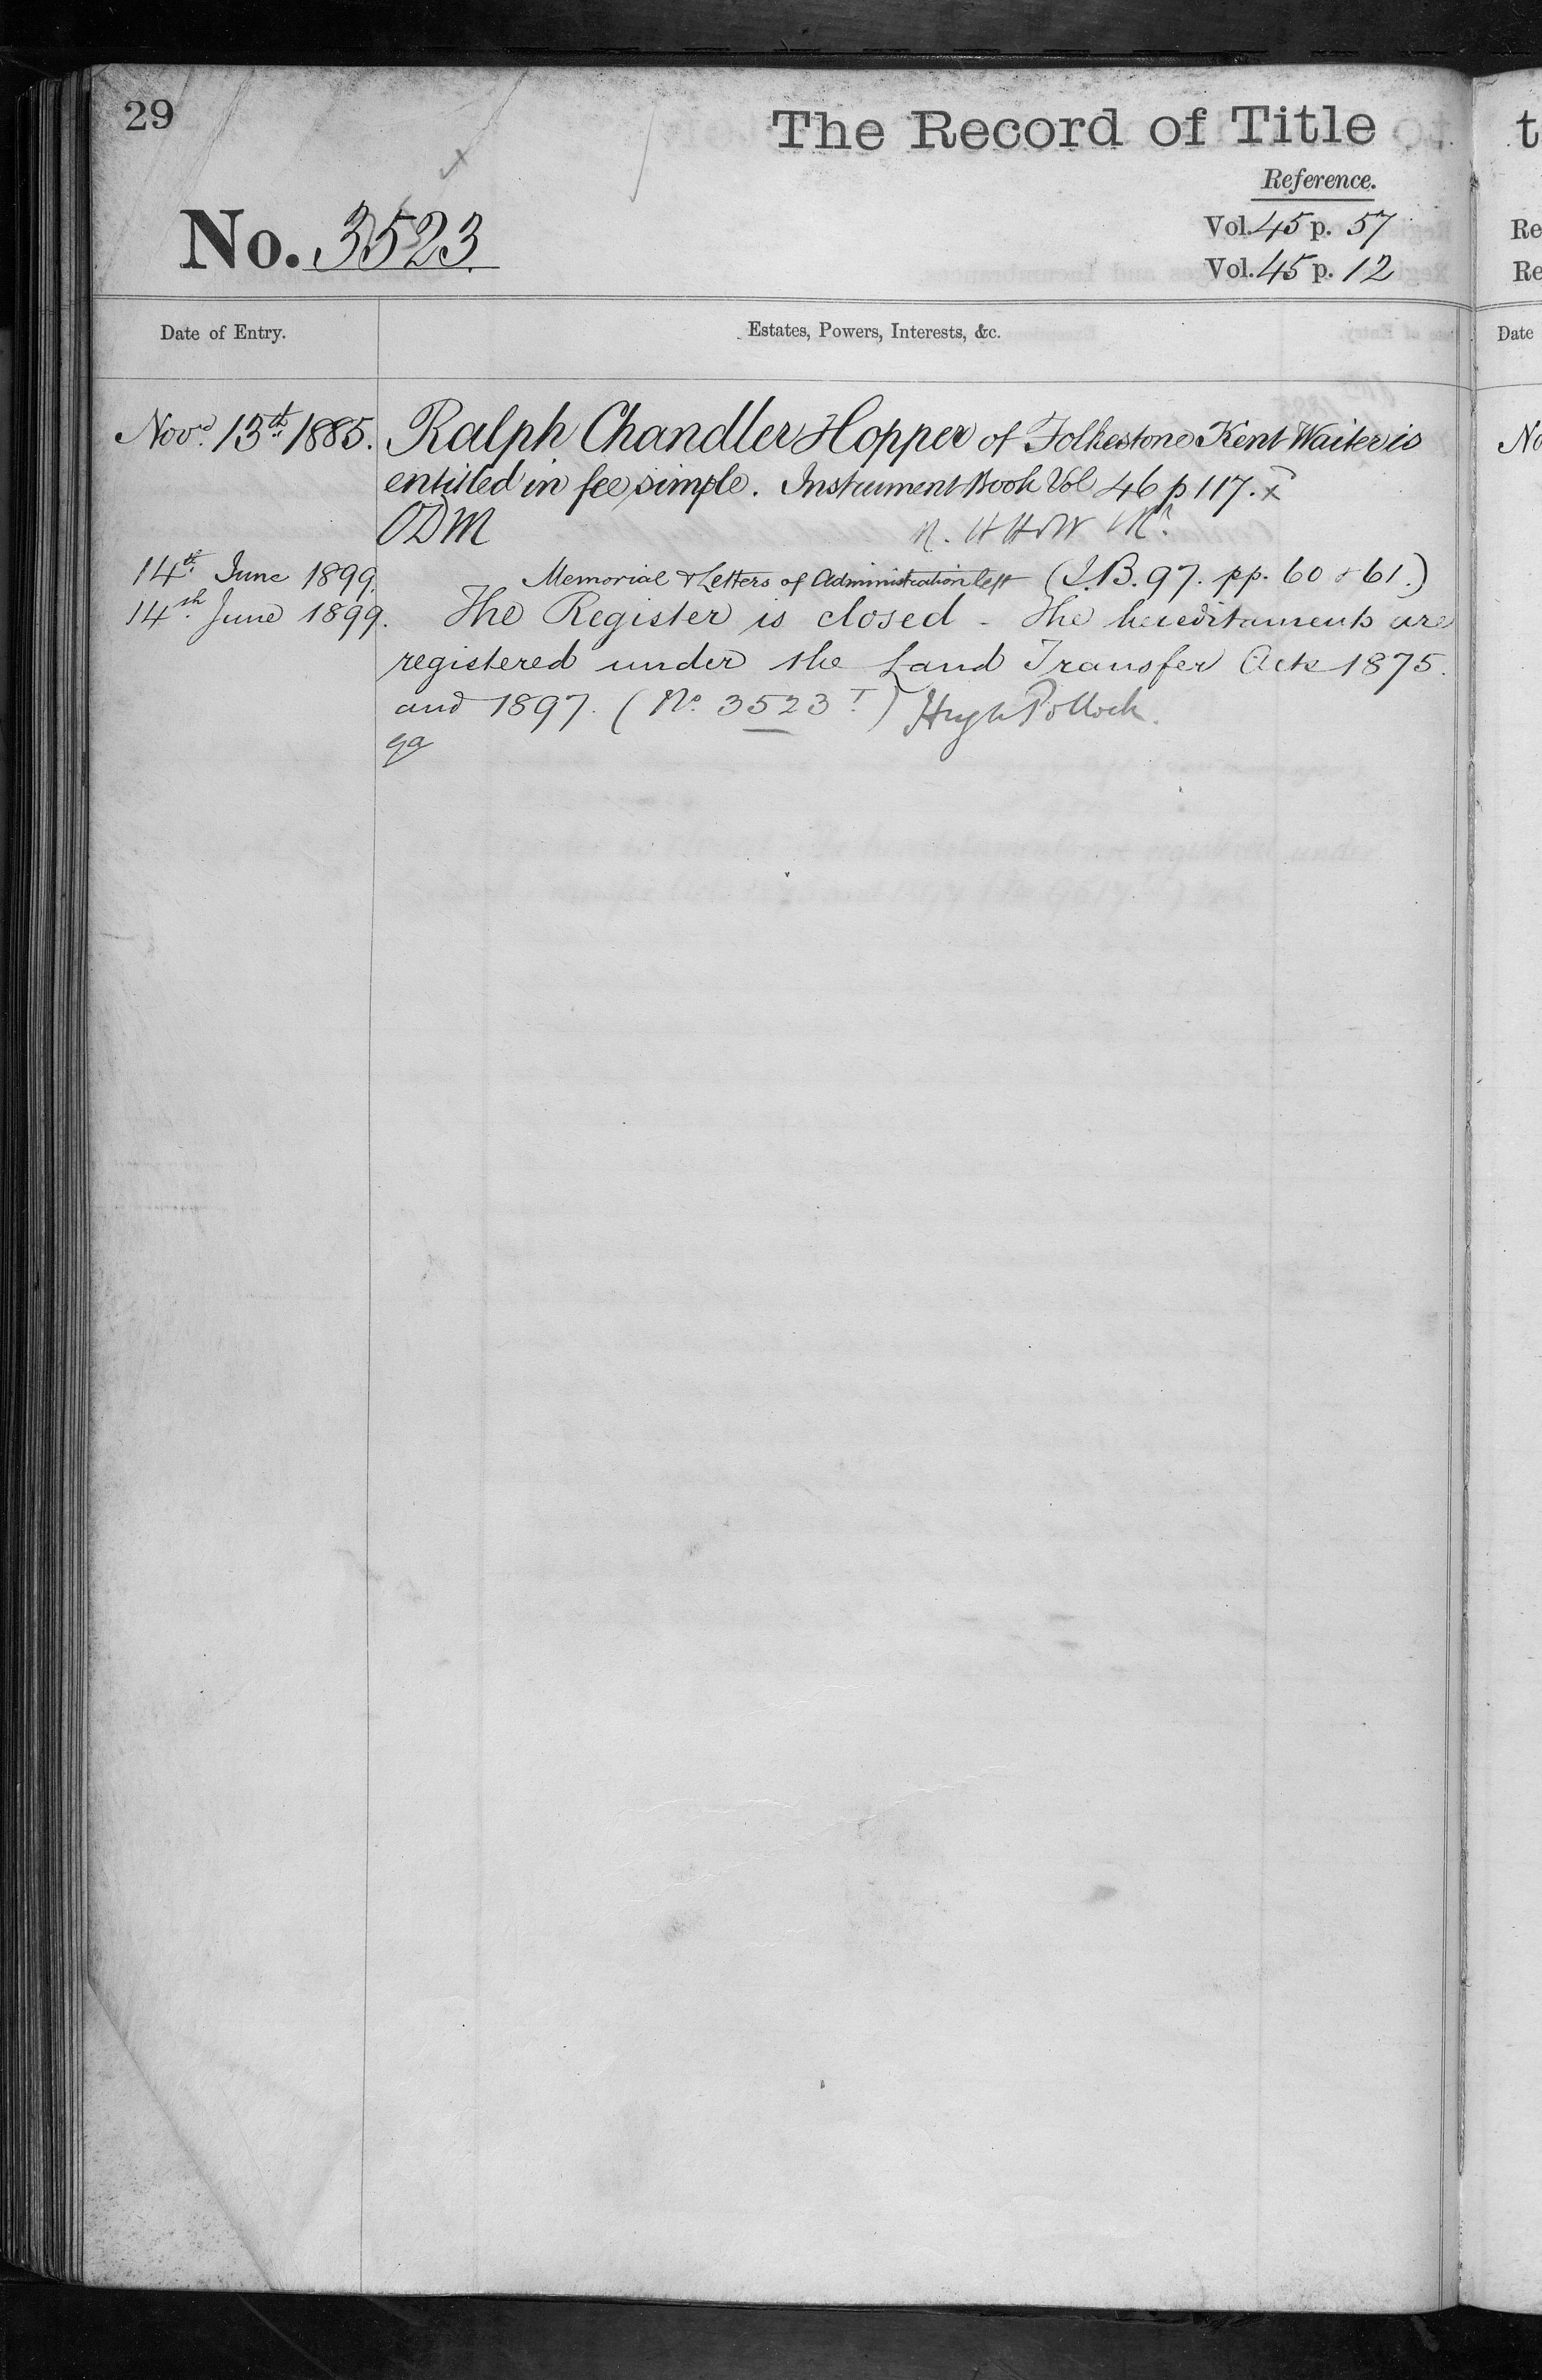 29
The Record of Title
Reference.
No. 3523.
Vol. 45 p. 57
Vol. 45 p. 12
Date of Entry.
Estates, Powers, Interests, &c.
Novr. 13th 1885. Ralph Chandler Hopper of Folkestone Kent Waiter is
entitled in fee simple. Instrument Book Vol 46 p 117. x
ODM
14th June 1899. Memorial & Letters of Administration left (I.B. 97. pp. 60 & 61.)
14th June 1899. The Register is closed - The hereditaments are
registered under the Land Transfer Acts 1875.
and 1897. (No. 3523 I) Hugh Pollock.
ga
t
Re
Re
Date
No